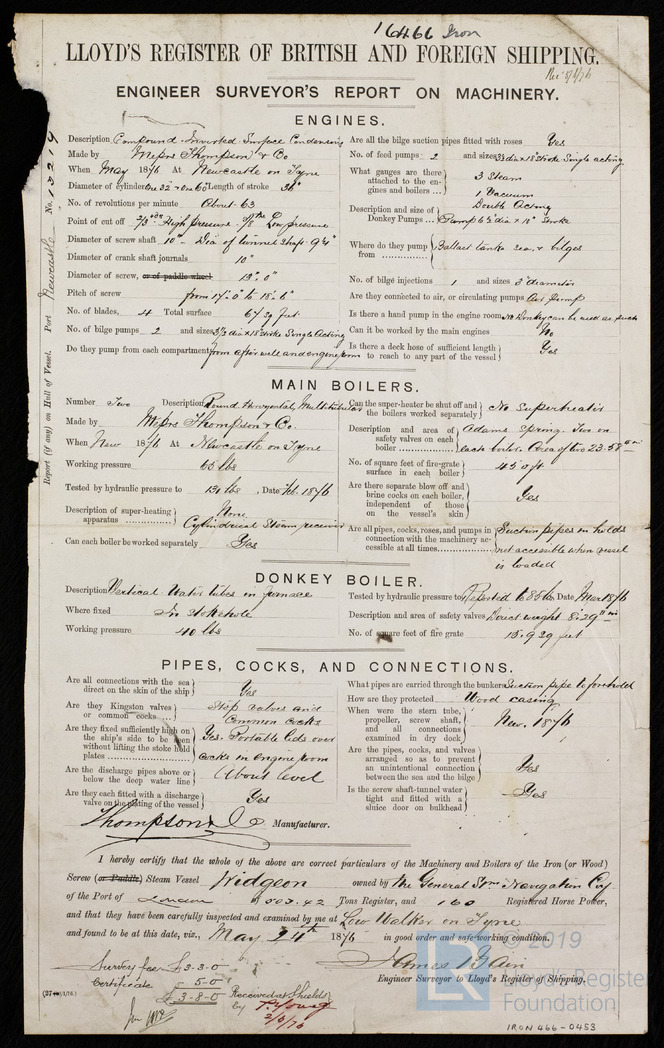 16466 Iron
LLOYD'S REGISTER OF BRITISH AND FOREIGN SHIPPING.
ENGINEER SURVEYOR'S REPORT ON MACHINERY.
No. 13279
Port Newcastle
Report (if any) on Hull of Vessel.
ENGINES.
Description Compound Inverted Surface Condensing
Made by Messrs Thompson & Co
When May 1876 At Newcastle on Tyne
Diameter of cylinders One 32" & One 60" Length of stroke 36"
No. of revolutions per minute About 63
Point of cut off 2/3rds High pressure Low pressure
Diameter of screw shaft 10" Dia of tunnel shaft 9½"
Diameter of crank shaft journals 10"
Diameter of screw, or of paddle wheel 13'. 0"
Pitch of screw from
No. of blades, 4 Total surface feet
No. of bilge pumps 2 and sizes 3½ dia × 18" stroke Single Acting
Do they pump from each compartment from after well and engine room
Are all the bilge suction pipes fitted with roses Yes
No. of feed pumps 2 and sizes dia × 18" stroke Single acting
What gauges are there attached to the engines and boilers ... 3 Steam
1 Vacuum
Description and size of Donkey Pumps ... Double Acting
Pump
Where do they pump from Ballast tanks sea, & bilges
No. of bilge injections 1 and sizes 3" diameter
Are they connected to air, or circulating pumps Air Pump
Is there a hand pump in the engine room No Donkey can be used as such
Can it be worked by the main engines No
Is there a deck hose of sufficient length to reach to any part of the vessel Yes
MAIN BOILERS.
Number Two Description Round Horizontal, Multitubular
Made by Messrs Thompson & Co.
When New 1876 At Newcastle on Tyne
Working pressure 65 lbs
Tested by hydraulic pressure to 130 lbs, Date Feb. 1876
Description of super-heating apparatus None
Cylindrical Steam receiver
Can each boiler be worked separately Yes
Can the super-heater be shut off and the boilers worked separately No Superheater
Description and area of safety valves on each boiler Adams Spring. Two on
each boiler. Area of two 23.58
No. of square feet of fire-grate surface in each boiler 45
Are there separate blow off and brine cocks on each boiler, independent of those on the vessel's skin Yes
Are all pipes, cocks, roses, and pumps in connection with the machinery accessible at all times Suction pipes in holds
not accessible when vessel
is loaded
DONKEY BOILER.
Description Vertical Water tubes in furnace
Where fixed In stokehole
Working pressure 40 lbs
Tested by hydraulic pressure to Reported to 85 lbs, Date Mar 1876
Description and area of safety valves Direct weight
No. of square feet of fire grate 15.9 feet
PIPES, COCKS, AND CONNECTIONS.
Are all connections with the sea direct on the skin of the ship Yes
Are they Kingston valves or common cocks Stop valves and
Common cocks
Are they fixed sufficiently high on the ship's side to be seen without lifting the stoke hold plates Yes. Portable lids over
cocks in engine room
Are the discharge pipes above or below the deep water line About level
Are they each fitted with a discharge valve on the plating of the vessel Yes
What pipes are carried through the bunkers Suction pipe to forehold
How are they protected Wood casing
When were the stern tube, propeller, screw shaft, and all connections examined in dry dock New. 1876
Are the pipes, cocks, and valves arranged so as to prevent an unintentional connection between the sea and the bilge Yes
Is the screw shaft-tunnel water tight and fitted with a sluice door on bulkhead Yes
Thompson & Co Manufacturer.
I hereby certify that the whole of the above are correct particulars of the Machinery and Boilers of the Iron (or Wood)
Screw (or Paddle) Steam Vessel Widgeon owned by The General Stm Navigation Coy
of the Port of London 503.42 Tons Register, and 160 Registered Horse Power,
and that they have been carefully inspected and examined by me at Low Walker on Tyne
and found to be at this date, viz., May 24th 1876 in good order and safe working condition.
James Bain
Engineer Surveyor to Lloyd's Register of Shipping.
Survey fee £3-3-0
Certificate 5-0
£3-8-0
Received at Shields
by
© 2019
LR
Lloyd's Register
Foundation
IRON 466-0453